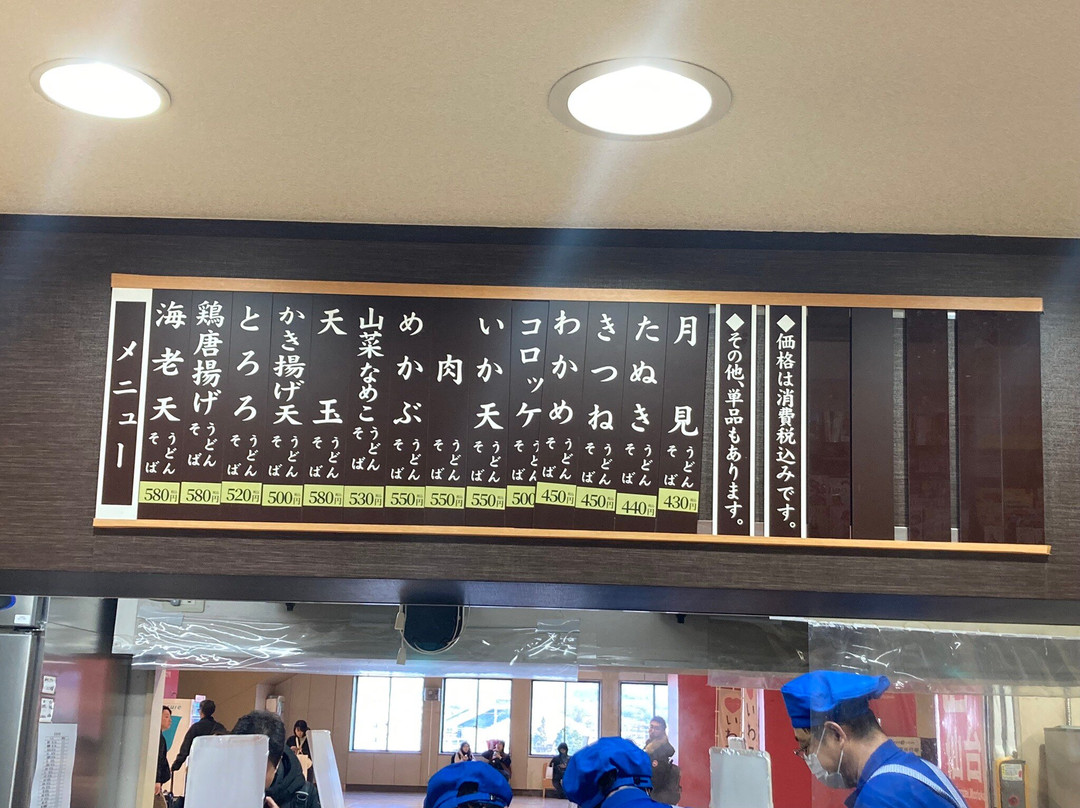 ◆価格は消費税込みです。
◆その他、単品もあります。
月見 うどん そば 430円
たぬき うどん そば 440円
きつね うどん そば 450円
わかめ うどん そば 450円
コロッケ うどん そば 500
いか天 うどん そば 550円
肉 うどん そば 550円
めかぶ うどん そば 550円
山菜なめこ うどん そば 530円
天玉 うどん そば 580円
かき揚げ天 うどん そば 500円
とろろ うどん そば 520円
鶏唐揚げ うどん そば 580円
海老天 うどん そば 580円
メニュー